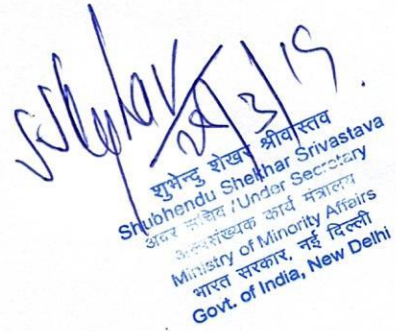 S.Shekhar
29/3/19.
शुभेन्दु शेखर श्रीवास्तव
Shubhendu Shekhar Srivastava
अवर सचिव /Under Secretary
अल्पसंख्यक कार्य मंत्रालय
Ministry of Minority Affairs
भारत सरकार, नई दिल्ली
Govt. of India, New Delhi